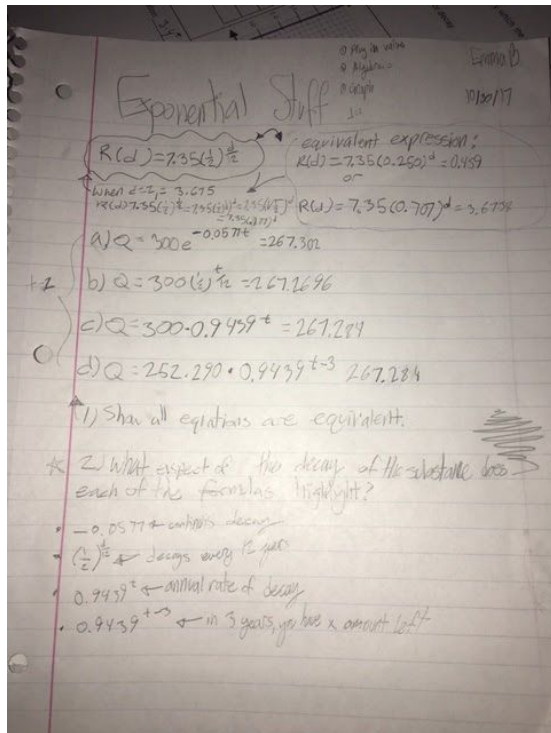 ① Plug in value
② Algebraic
③ Graph
Emma B.
Exponential Stuff
R(d)=7.35(½)^(d/2)
equivalent expression:
R(d)=7.35(0.250)^d=0.459
or
R(d)=7.35(0.707)^d=3.675
When d=2,= 3.675
a) Q=300e^(-0.0577t) =267.302
+2
b) Q=300(½)^(t/12) =267.2696
c) Q=300·0.9439^t =267.284
d) Q=252.290·0.9439^(t-3) 267.284
1) Show all eqlations are equivalent.
2.) What aspect of the decay of the substance does
each of the formulas highlight?
-0.0577 ←
(½)^(t/12) ← decays every 12 years
0.9439^t ← annual rate of decay
0.9439^(t-3) ← in 3 years, you have x amount left